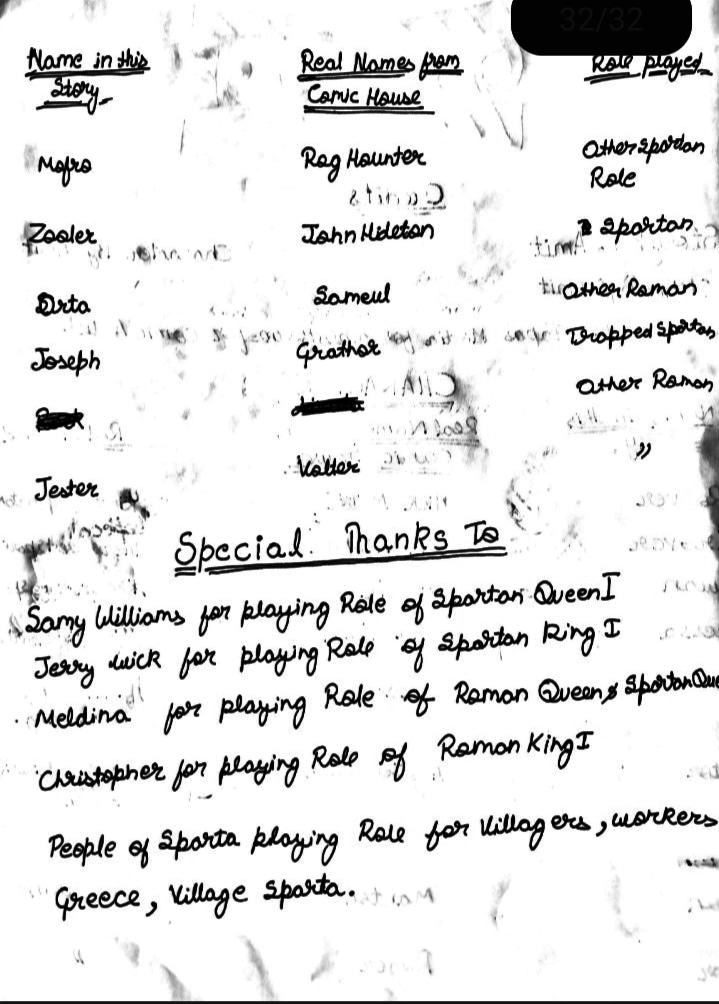 32/32
Name in this Real Names from Role played
Story Comic House
Mofro Rag Haunter Other Spartan
Role
Zooler John Hideton Spartan
Orta Sameul Other Roman
Joseph Grathor Trapped Spartan
Other Roman
Jester Valter "
Special Thanks To
Samy Williams for playing Role of Spartan Queen I
Jerry wick for playing Role of Spartan King I
Meldina for playing Role of Roman Queen & Spartan Que
Christopher for playing Role of Roman King I
People of Sparta playing Role for Villagers, workers
Greece, Village Sparta.